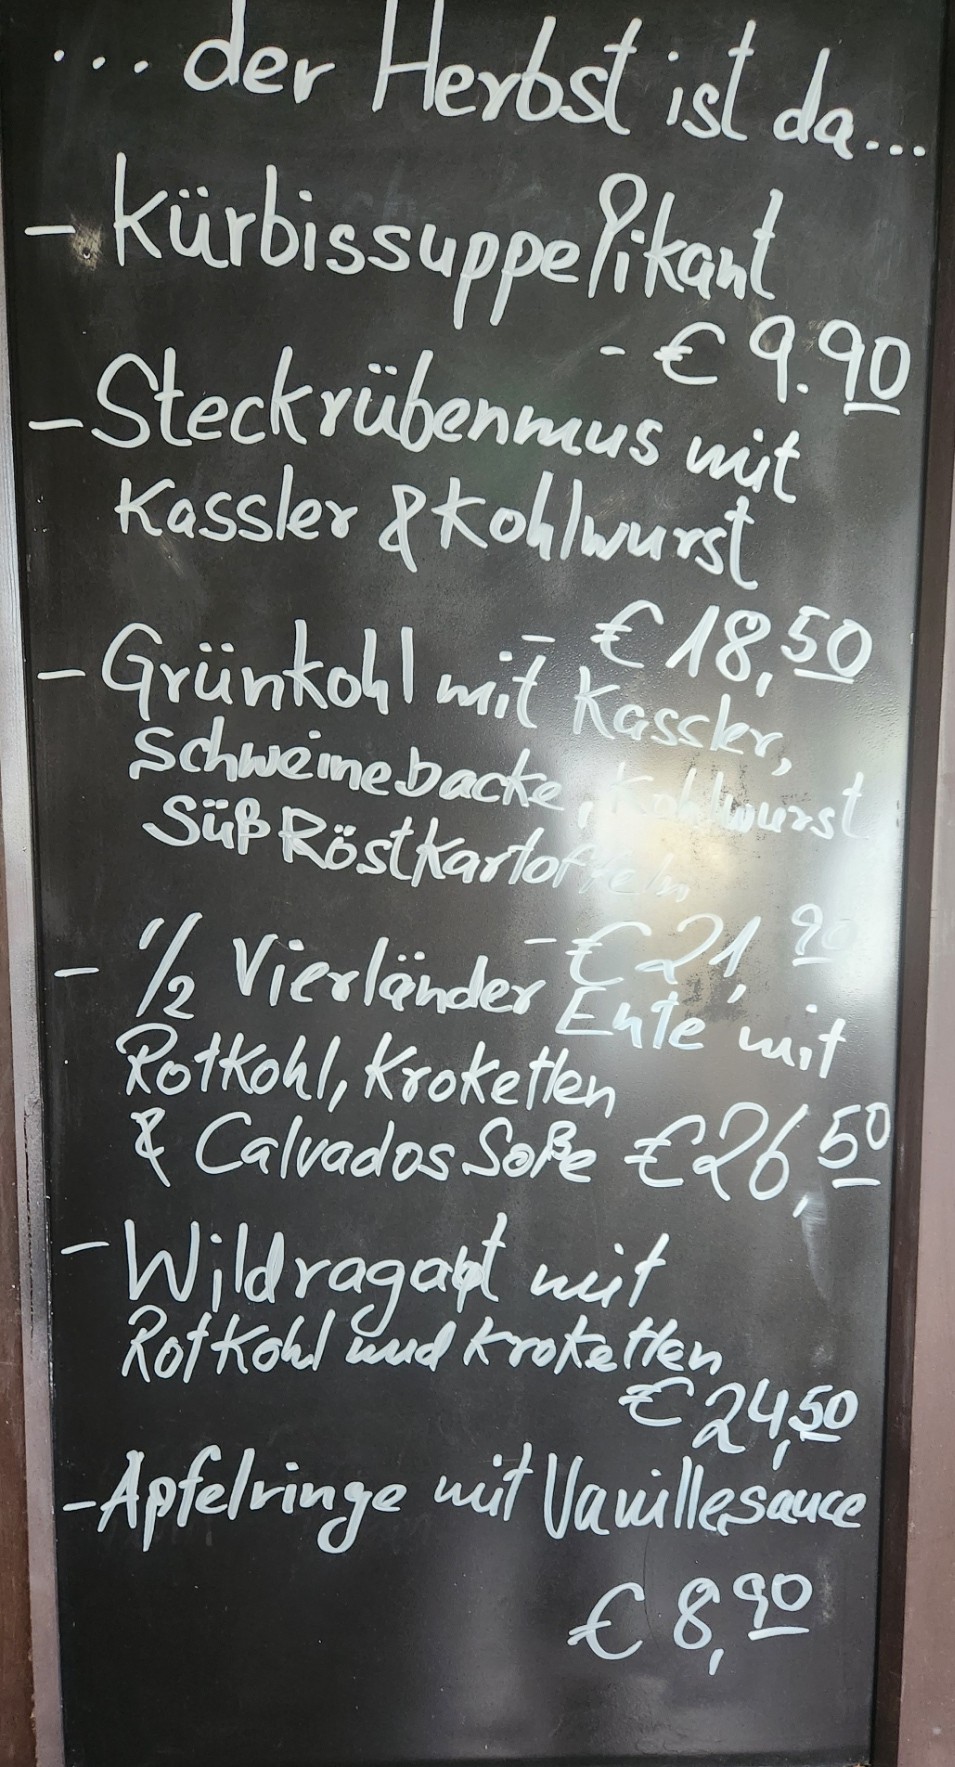 ... der Herbst ist da...
- Kürbissuppe Pikant
- € 9.90
- Steckrübenmus mit
Kassler & Kohlwurst
- € 18,50
- Grünkohl mit Kassler,
Schweinebacke, Kohlwurst
Süß Röstkartoffeln
- € 21,90
- 1/2 Vierländer Ente mit
Rotkohl, Kroketten
& Calvados Soße € 26,50
- Wildragout mit
Rotkohl und Kroketten
€ 24,50
- Apfelringe mit Vanillesauce
€ 8,90